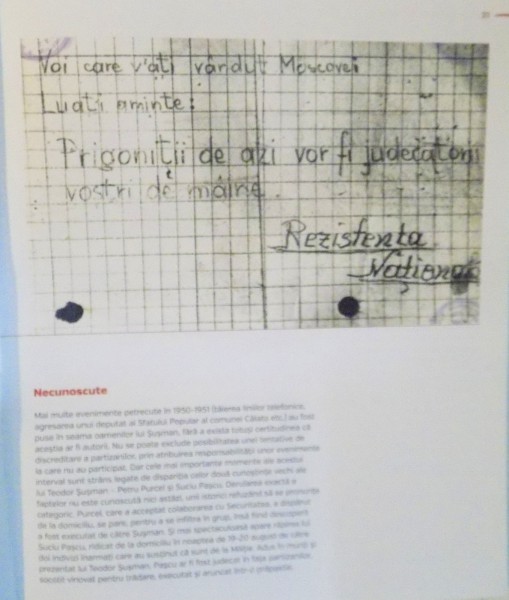 Voi care v'ați vândut Moscovei
Luați aminte:
Prigoniții de azi vor fi judecătorii
voștri de mâine.
Rezistența
Națională
Necunoscute
Mai multe evenimente petrecute în 1950-1951 (tăierea liniilor telefonice,
agresarea unui deputat al Sfatului Popular al comunei Călata etc.) au fost
puse în seama oamenilor lui Șușman, fără a exista totuși certitudinea că
aceștia ar fi autorii. Nu se poate exclude posibilitatea unei tentative de
discreditare a partizanilor, prin atribuirea responsabilității unor evenimente
la care nu au participat. Dar cele mai importante momente ale acestui
interval sunt strâns legate de dispariția celor două cunoștințe vechi ale
lui Teodor Șușman - Petru Purcel și Suciu Pașcu. Derularea exactă a
faptelor nu este cunoscută nici astăzi, unii istorici refuzând să se pronunțe
categoric. Purcel, care a acceptat colaborarea cu Securitatea, a dispărut
de la domiciliu, se pare, pentru a se infiltra în grup, însă fiind descoperit
a fost executat de către Șușman. Și mai spectaculoasă apare răpirea lui
Suciu Pașcu, ridicat de la domiciliu în noaptea de 19-20 august de către
doi indivizi înarmați care au susținut că sunt de la Miliție. Adus în munți și
prezentat lui Teodor Șușman, Pașcu ar fi fost judecat în fața partizanilor,
găsit vinovat pentru trădare, executat și aruncat într-o prăpastie.